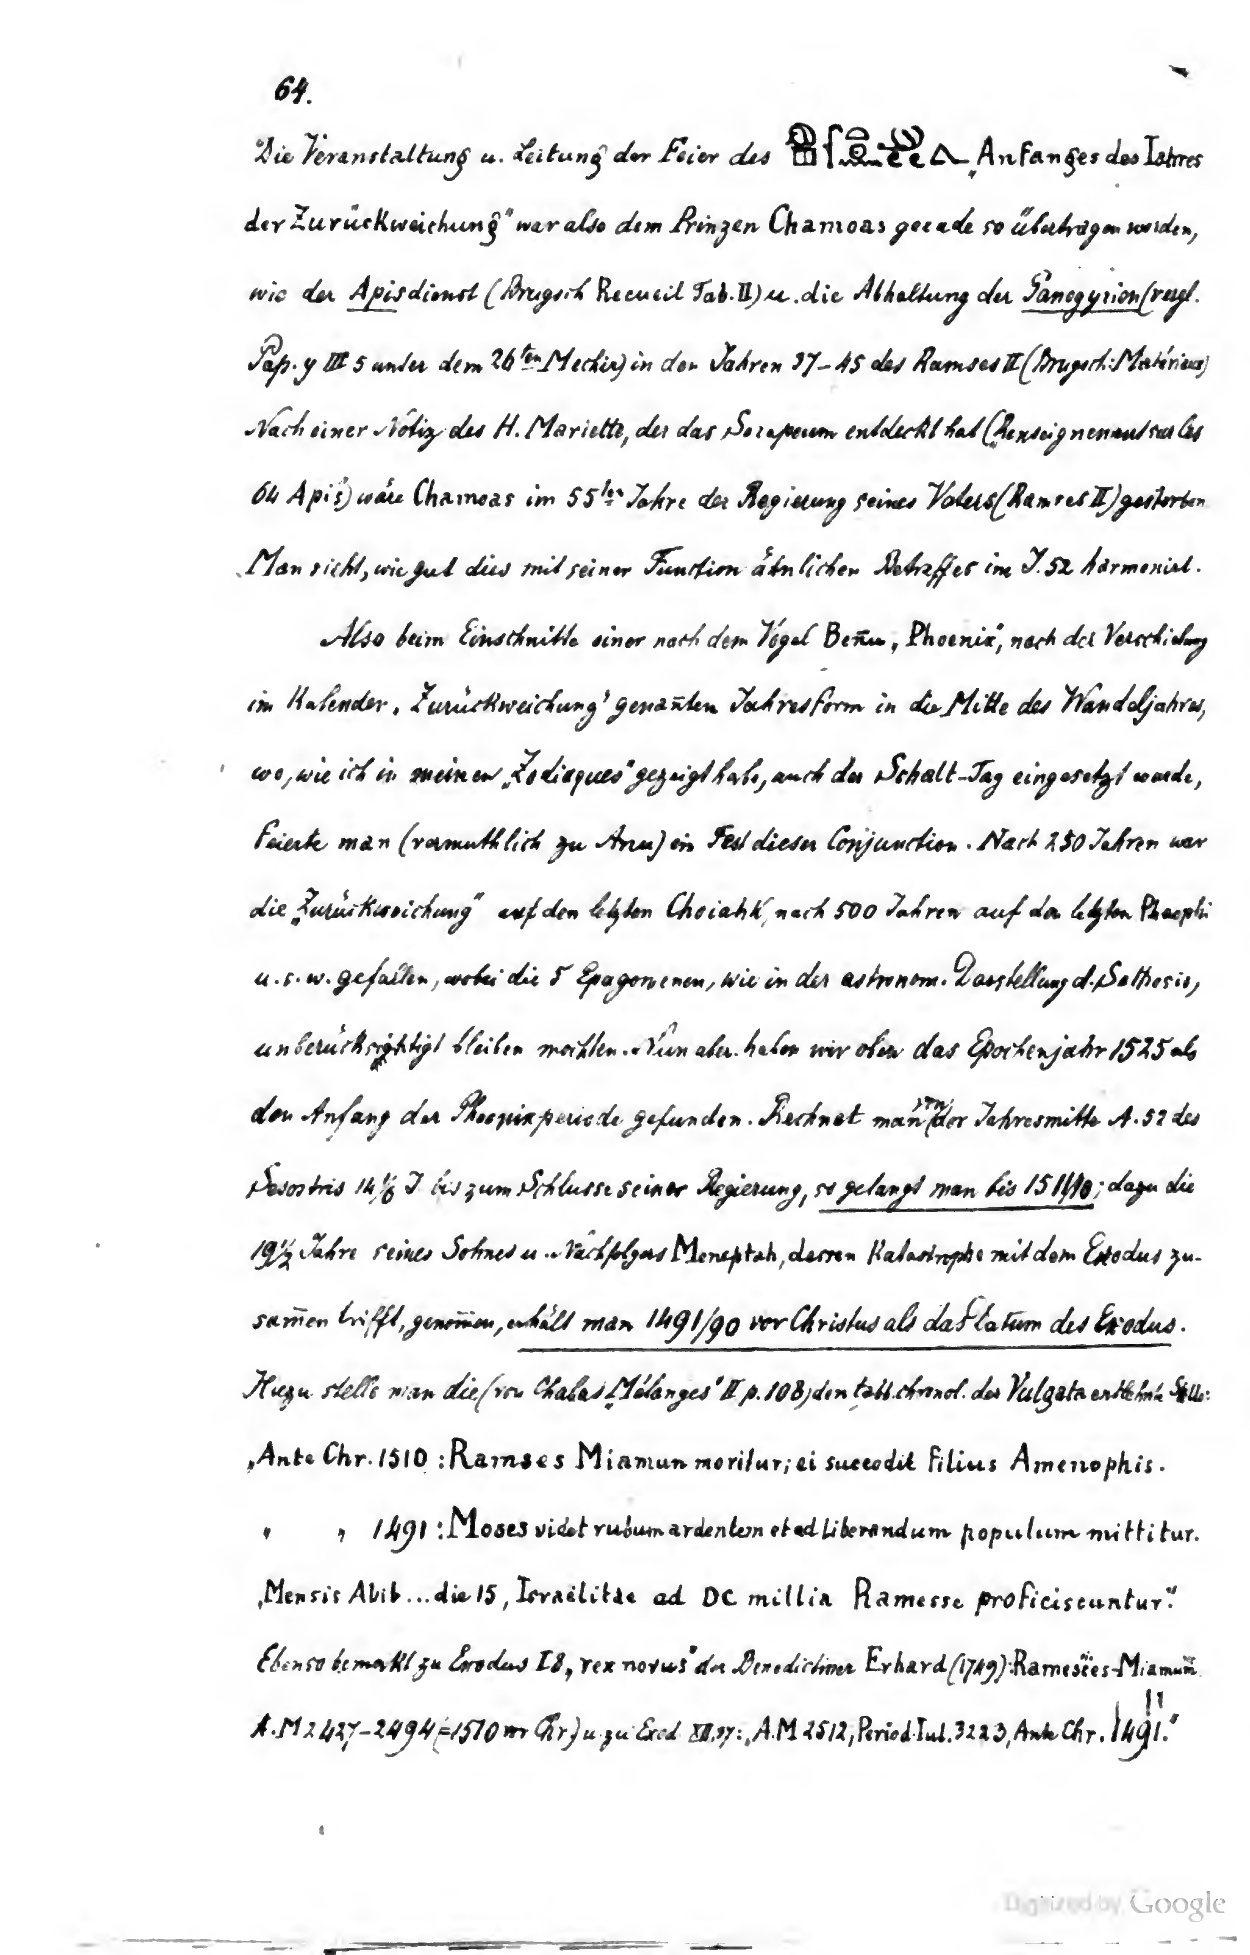 64.
Die Veranstaltung u. Leitung der Feier des „Anfanges des Iahres
der Zurückweichung" war also dem Prinzen Chamoas gerade so übertragen worden,
wie der Apisdienst (Brugsch Recueil Tab. II) u. die Abhaltung der Panegyrien (vergl.
Pap. y III 5 unter dem 26ten Mechir) in den Jahren 37–45 des Ramses II (Brugsch: Matériaux)
Nach einer Notiz des H. Mariette, der das Serapeum entdeckt hat (Renseignement sur les
64 Apis) wäre Chamoas im 55ten Jahre der Regierung seines Vaters (Ramses II) gestorben
Man sieht, wie gut dies mit seiner Function ähnlichen Betreffes im J. 52 harmonirt.
Also beim Einschnitte einer nach dem Vogel Ben̄u „Phoenix", nach der Verschiebung
im Kalender „Zurückweichung" genan̄ten Jahresform in die Mitte des Wandeljahres,
wo, wie ich in meinen „Zodiaques" gezeigt habe, auch der Schalt-Tag eingesetzt wurde,
feierte man (vermuthlich zu Anu) ein Fest dieser Conjunction. Nach 250 Jahren war
die „Zurückweichung" auf den letzten Choiahk, nach 500 Jahren auf den letzten Phaophi
u. s. w. gefallen, wobei die 5 Epagomenen, wie in der astronom. Darstellung d. Sethosis,
unberücksichtigt bleiben mochten. Nun aber haben wir oben das Epochenjahr 1525 als
den Anfang der Phoenixperiode gefunden. Rechnet man von der Jahresmitte A. 52 des
Sesostris 14 1/6 J bis zum Schlusse seiner Regierung, so gelangt man bis 1511/10; dazu die
19 1/2 Jahre seines Sohnes u. Nachfolgers Meneptah, dessen Katastrophe mit dem Exodus zu-
sam̄en trifft, genom̄en, erhält man 1491/90 vor Christus als das Datum des Exodus.
Hiezu stelle man die (von Chabas „Mélanges" II p. 108) den tabb. chronol. der Vulgata entlehnte Stelle:
„Ante Chr. 1510 : Ramses Miamun moritur; ei succedit filius Amenophis.
" " 1491 : Moses videt rubum ardentem et ad liberandum populum mittitur.
„Mensis Abib ... die 15, Israëlitae ad DC millia Ramesse proficiscuntur."
Ebenso bemerkt zu Exodus I 8 „rex novus" der Benedictiner Erhard (1749): Ramesses-Miamum
A. M 2427–2494 (=1510 vor Chr) u. zu Exod XII, 37: „A. M 2512, Period. Iul. 3223, Ante Chr. 1491."
Digitized by Google